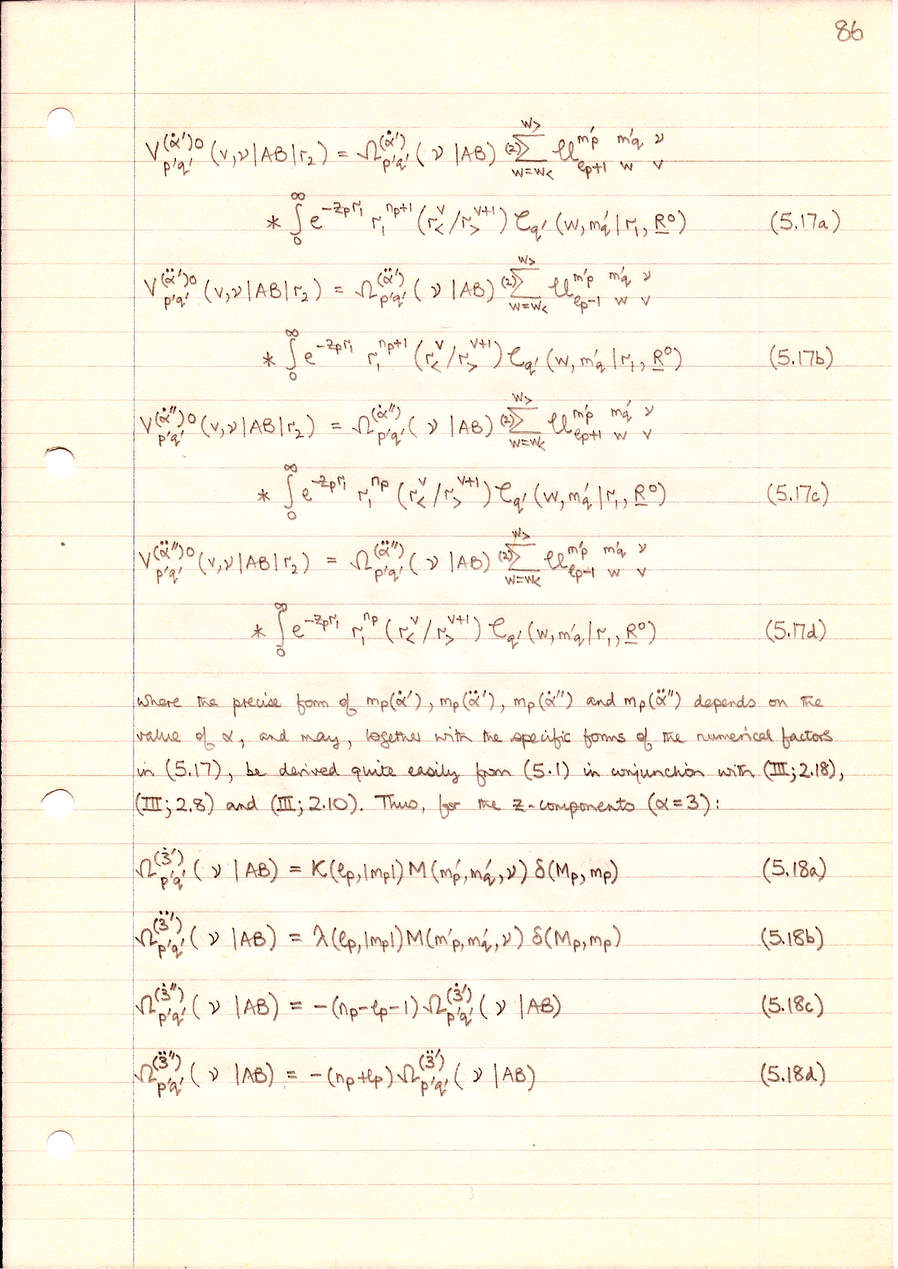 86
V_{p'q'}^{(α̇')0}(v,ν|AB|r₂) = Ω_{p'q'}^{(α̇')}(ν|AB) ^{(2)}∑_{w=w<}^{w>} 𝒰_{ℓp+1 w v}^{m'p m'q ν}
* ∫₀^∞ e^{-zₚr₁} r₁^{nₚ+1} (r_<^v/r_>^{v+1}) 𝒞_{q'}(w,m'q|r₁,R⁰) (5.17a)
V_{p'q'}^{(α̈')0}(v,ν|AB|r₂) = Ω_{p'q'}^{(α̈')}(ν|AB) ^{(2)}∑_{w=w<}^{w>} 𝒰_{ℓp-1 w v}^{m'p m'q ν}
* ∫₀^∞ e^{-zₚr₁} r₁^{nₚ+1} (r_<^v/r_>^{v+1}) 𝒞_{q'}(w,m'q|r₁,R⁰) (5.17b)
V_{p'q'}^{(α̇'')0}(v,ν|AB|r₂) = Ω_{p'q'}^{(α̇'')}(ν|AB) ^{(2)}∑_{w=w<}^{w>} 𝒰_{ℓp+1 w v}^{m'p m'q ν}
* ∫₀^∞ e^{-zₚr₁} r₁^{nₚ} (r_<^v/r_>^{v+1}) 𝒞_{q'}(w,m'q|r₁,R⁰) (5.17c)
V_{p'q'}^{(α̈'')0}(v,ν|AB|r₂) = Ω_{p'q'}^{(α̈'')}(ν|AB) ^{(2)}∑_{w=w<}^{w>} 𝒰_{ℓp-1 w v}^{m'p m'q ν}
* ∫₀^∞ e^{-zₚr₁} r₁^{nₚ} (r_<^v/r_>^{v+1}) 𝒞_{q'}(w,m'q|r₁,R⁰) (5.17d)
where the precise form of mₚ(α̇'), mₚ(α̈'), mₚ(α̇'') and mₚ(α̈'') depends on the
value of α, and may, together with the specific forms of the numerical factors
in (5.17), be derived quite easily from (5.1) in conjunction with (III;2.18),
(III;2.8) and (III;2.10). Thus, for the z-components (α=3):
Ω_{p'q'}^{(3̇')}(ν|AB) = K(ℓₚ,|mₚ|)M(m'p,m'q,ν) δ(Mₚ,mₚ) (5.18a)
Ω_{p'q'}^{(3̈')}(ν|AB) = λ(ℓₚ,|mₚ|)M(m'p,m'q,ν) δ(Mₚ,mₚ) (5.18b)
Ω_{p'q'}^{(3̇'')}(ν|AB) = -(nₚ-ℓₚ-1)Ω_{p'q'}^{(3̇')}(ν|AB) (5.18c)
Ω_{p'q'}^{(3̈'')}(ν|AB) = -(nₚ+ℓₚ)Ω_{p'q'}^{(3̈')}(ν|AB) (5.18d)